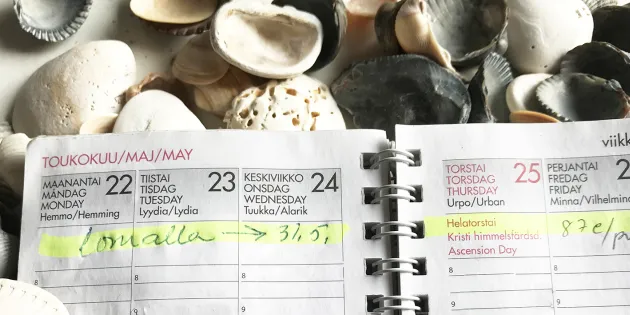 TOUKOKUU/MAJ/MAY
MAANANTAI 22
MÅNDAG
MONDAY
Hemmo/Hemming
TIISTAI 23
TISDAG
TUESDAY
Lyydia/Lydia
KESKIVIIKKO 24
ONSDAG
WEDNESDAY
Tuukka/Alarik
lomalla → 31.5.
8
8
8
9
9
viikk
TORSTAI 25
TORSDAG
THURSDAY
Urpo/Urban
Helatorstai
Kristi himmelsfärdsd.
Ascension Day
PERJANTAI 2
FREDAG
FRIDAY
Minna/Vilhelmina
87e/p
8
8
9